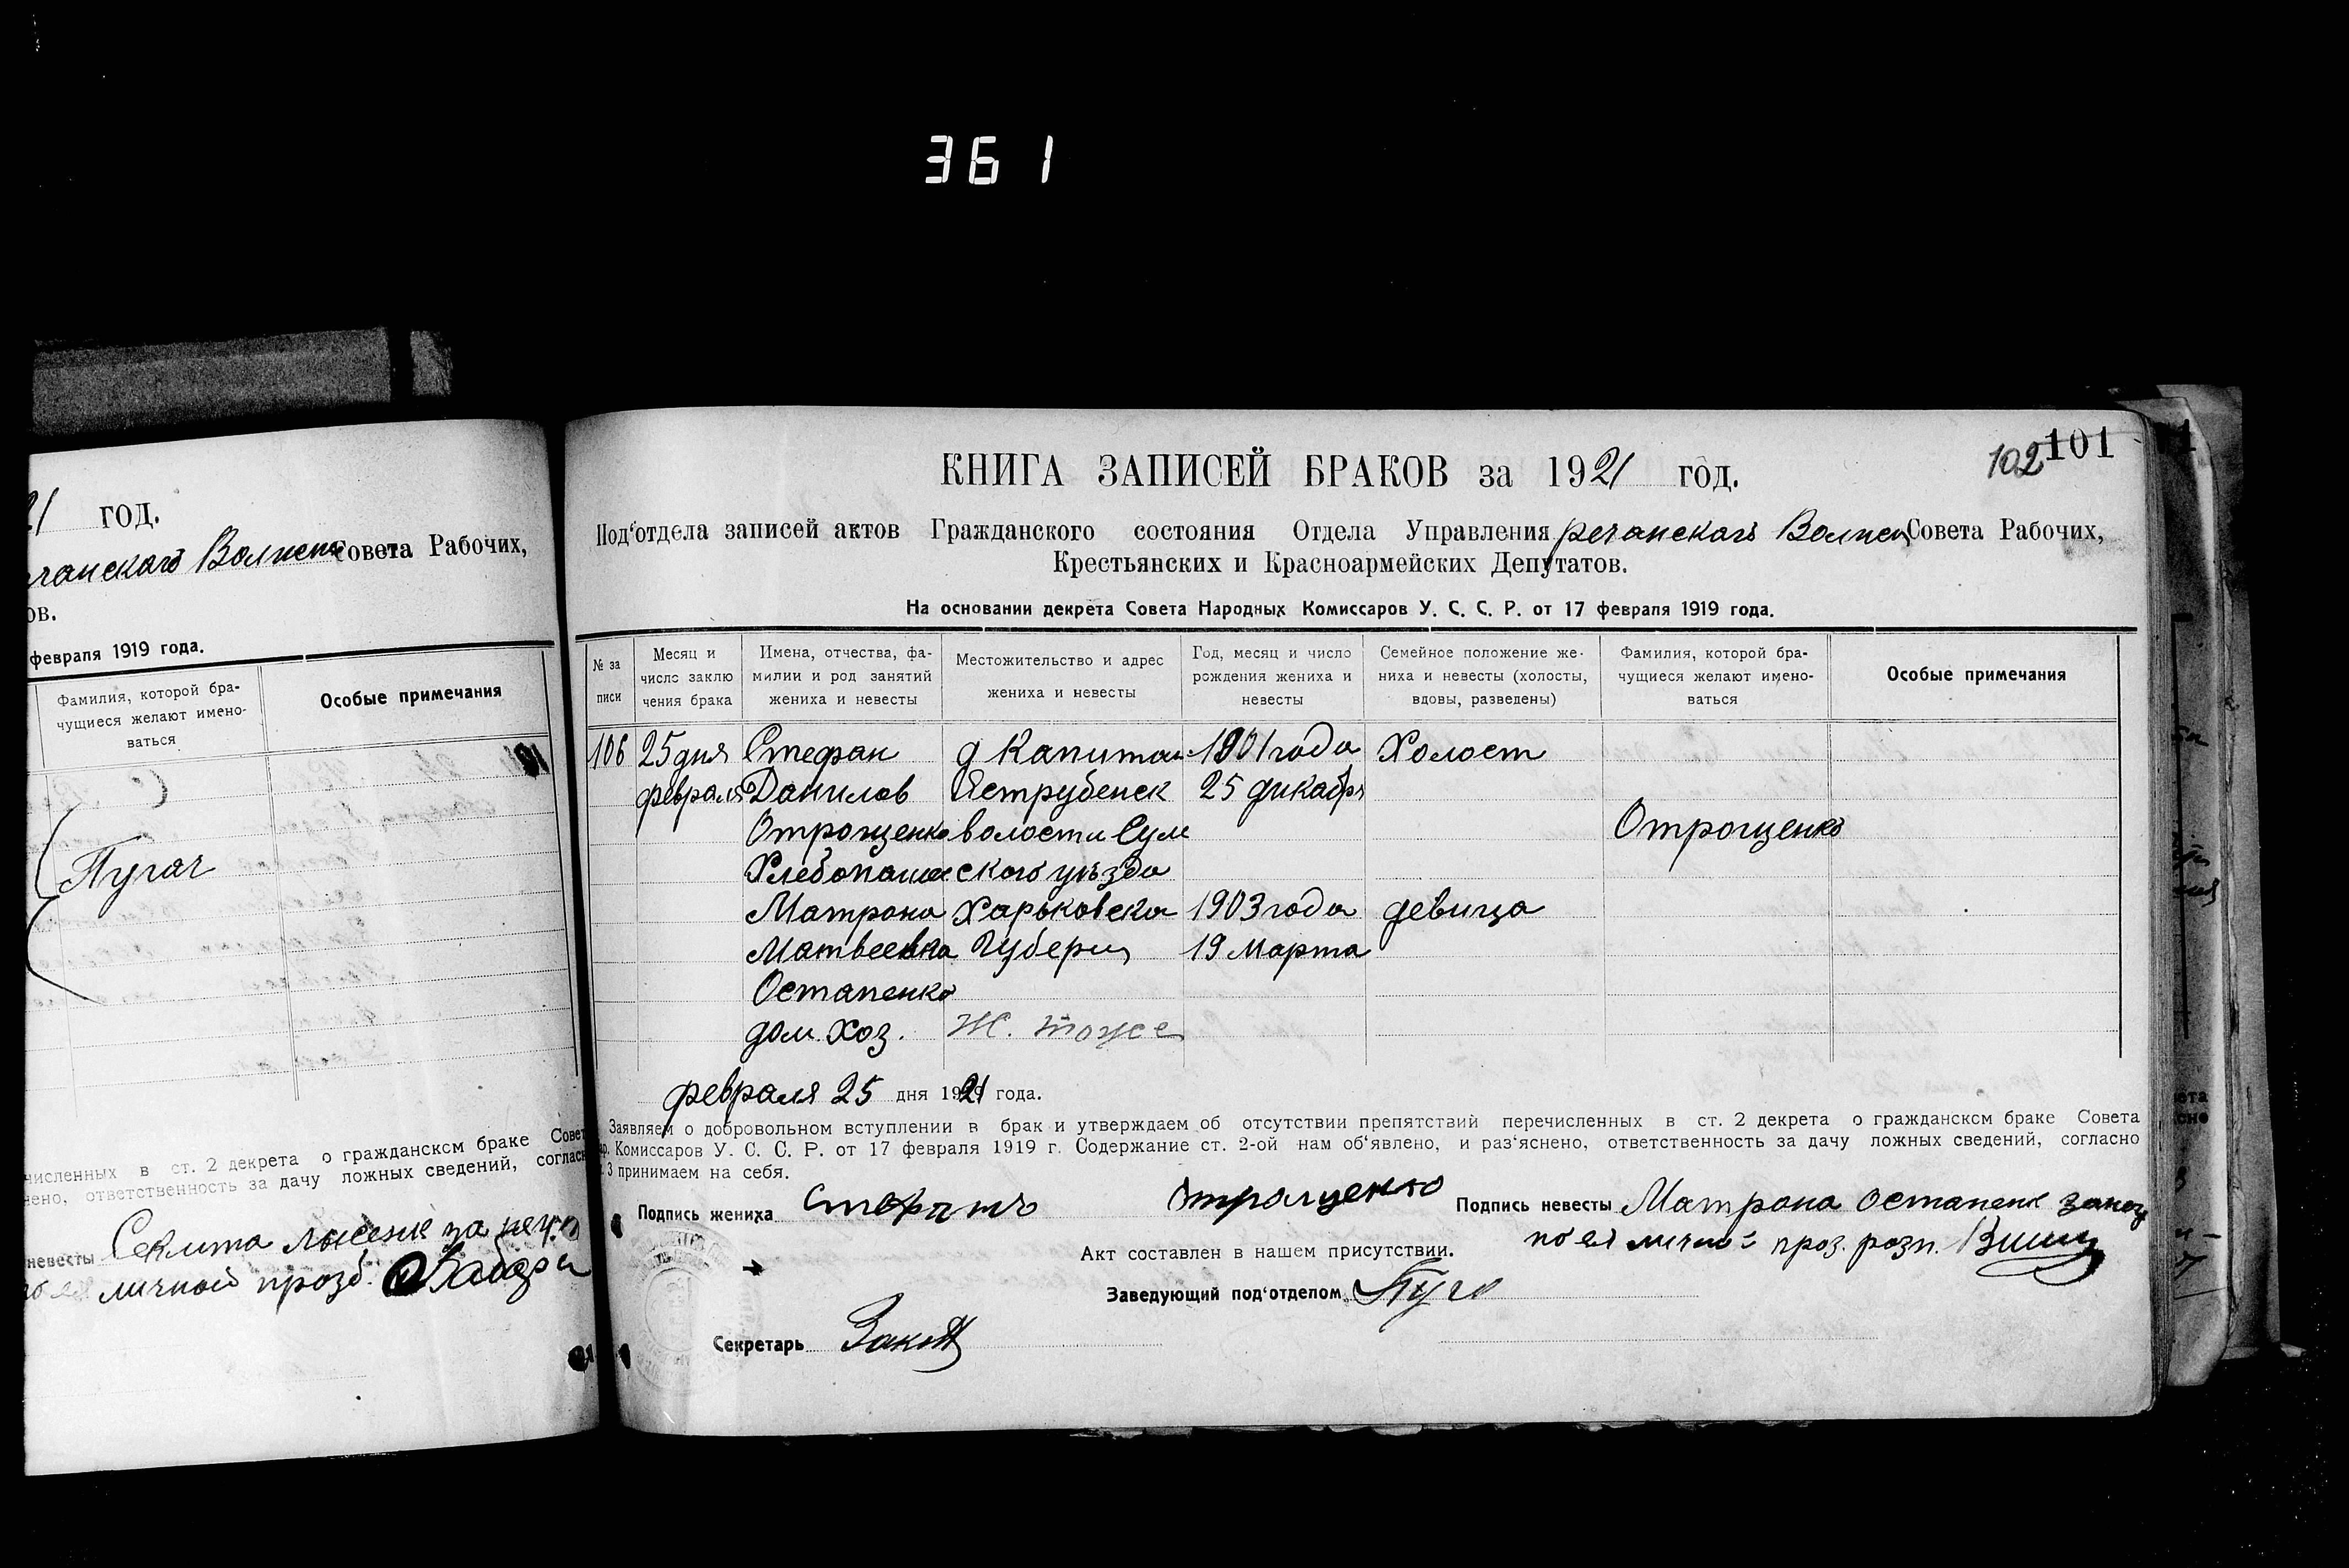 361
21 год.
Волисп Совета Рабочих,
ов.
февраля 1919 года.
Фамилия, которой бра-
чущиеся желают имено-
ваться
Особые примечания
Пугач
численных в ст. 2 декрета о гражданском браке Совет
нено, ответственность за дачу ложных сведений, соглас
невесты
личной
101
102
КНИГА ЗАПИСЕЙ БРАКОВ за 1921 год.
Под‘отдела записей актов Гражданского состояния Отдела Управления Речанскаго Волисп Совета Рабочих,
Крестьянских и Красноармейских Депутатов.
На основании декрета Совета Народных Комиссаров У. С. С. Р. от 17 февраля 1919 года.
№ за
писи
Месяц и
число заклю
чения брака
Имена, отчества, фа-
милии и род занятий
жениха и невесты
Местожительство и адрес
жениха и невесты
Год, месяц и число
рождения жениха и
невесты
Семейное положение же-
ниха и невесты (холосты,
вдовы, разведены)
Фамилия, которой бра-
чущиеся желают имено-
ваться
Особые примечания
106 25 дня Стефан д Капитан 1901 года Холост
февраля Данилов Яструбенск 25 дикабря
Отрощенко волости Сум Отрощенко
Хлебопашец ского уъзда
Матрона Харьковска 1903 года девица
Матвеевна Губерн 19 Марта
Остапенко
дом. хоз. Ж. тоже
февраля 25 дня 1921 года.
Заявляем о добровольном вступлении в брак и утверждаем об отсутствии препятствий перечисленных в ст. 2 декрета о гражданском браке Совета
р. Комиссаров У. С. С. Р. от 17 февраля 1919 г. Содержание ст. 2-ой нам об‘явлено, и раз‘яснено, ответственность за дачу ложных сведений, согласно
. 3 принимаем на себя.
Подпись жениха Отрощенко Подпись невесты Матрона Остапенк
Акт составлен в нашем присутствии.
Заведующий под‘отделом
Секретарь